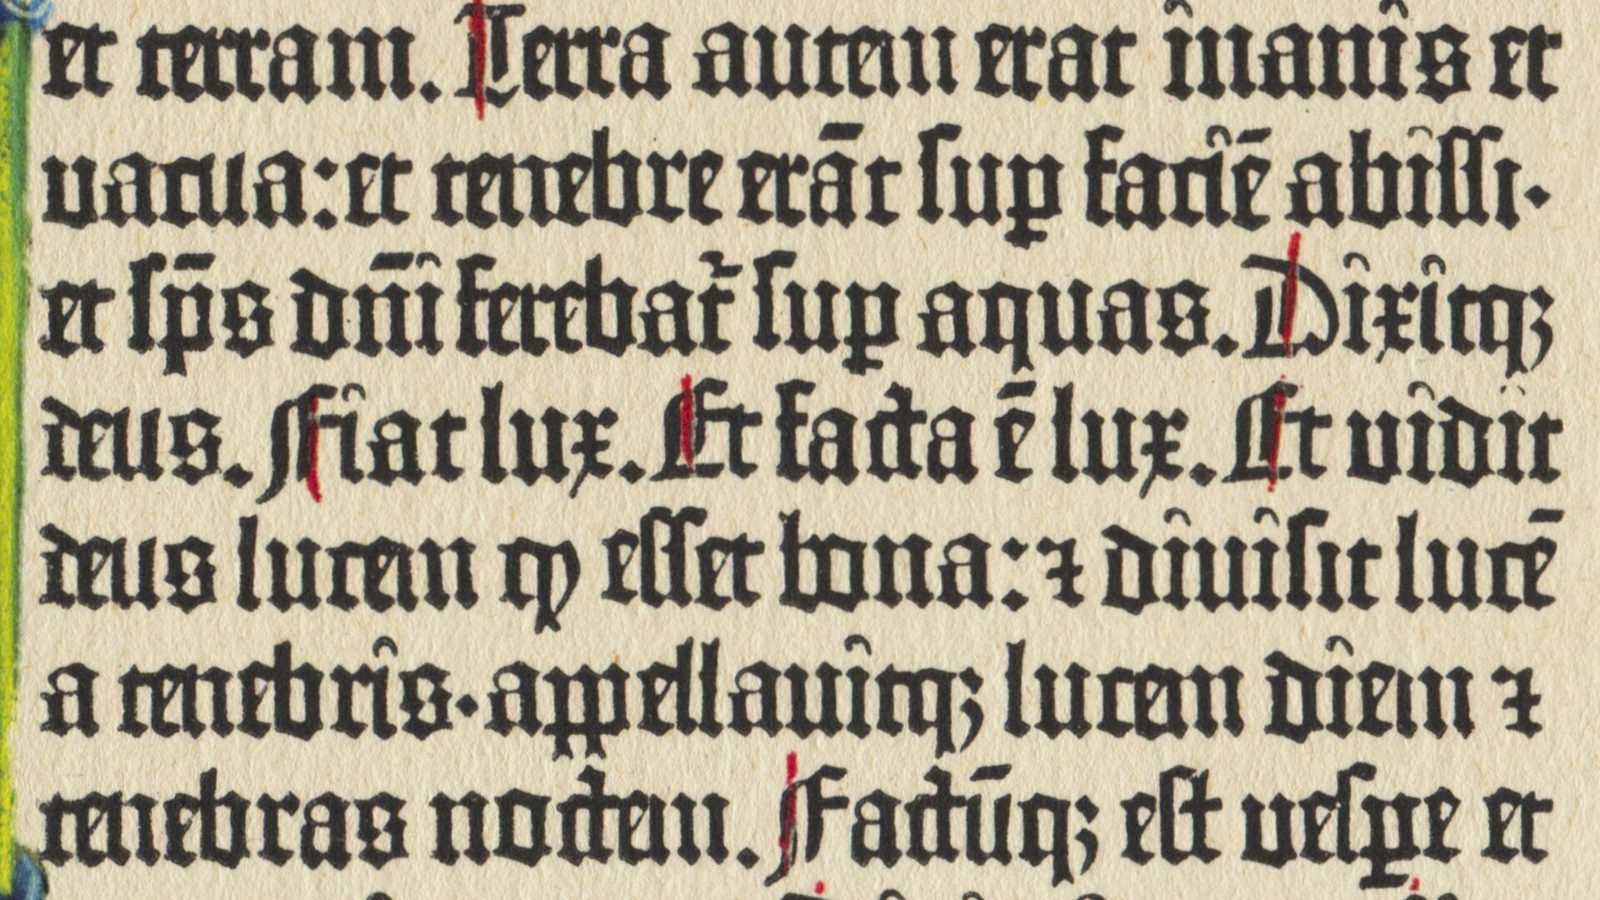 et terram. Terra autem erat inanis et
vacua: et tenebre erāt sup̱ faciē abissi·
et sp̄s dn̄i ferebat᷑ sup̱ aquas. Dixitqꝫ
deus. Fiat lux. Et facta ē lux. Et vidit
deus lucem ꝙ esset bona: ⁊ divisit lucē
a tenebris· appellavitqꝫ lucem diem ⁊
tenebras noctem. Factūqꝫ est vesꝑe et